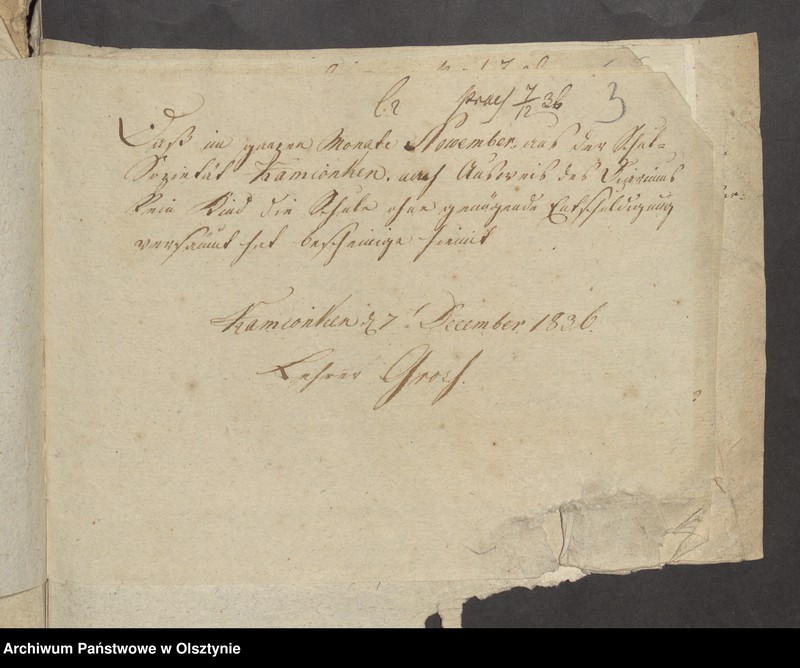 praes 7/12 36
3
Daß im ganzen Monate November aus der Schul-
Sozietät Kamionken, nach Ausweis des Diariums
kein Kind die Schule ohne genügende Entschuldigung
versäumt hat bescheinige hiemit
Kamionken d 7t December 1836.
Lehrer
Archiwum Państwowe w Olsztynie